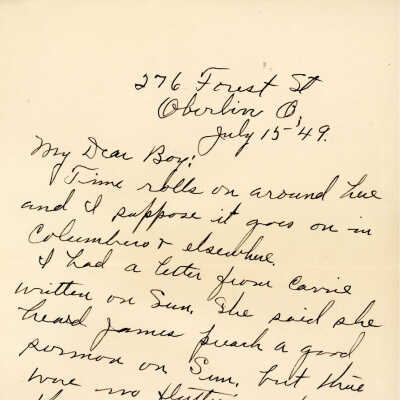 276 Forest St
Oberlin O,
July 15 '49.
My Dear Boy:
Time rolls on around here
and I suppose it goes on in
Columbus & elsewhere.
I had a letter from Carrie
written on Sun. She said she
heard James preach a good
sermon on Sun. but there
were no